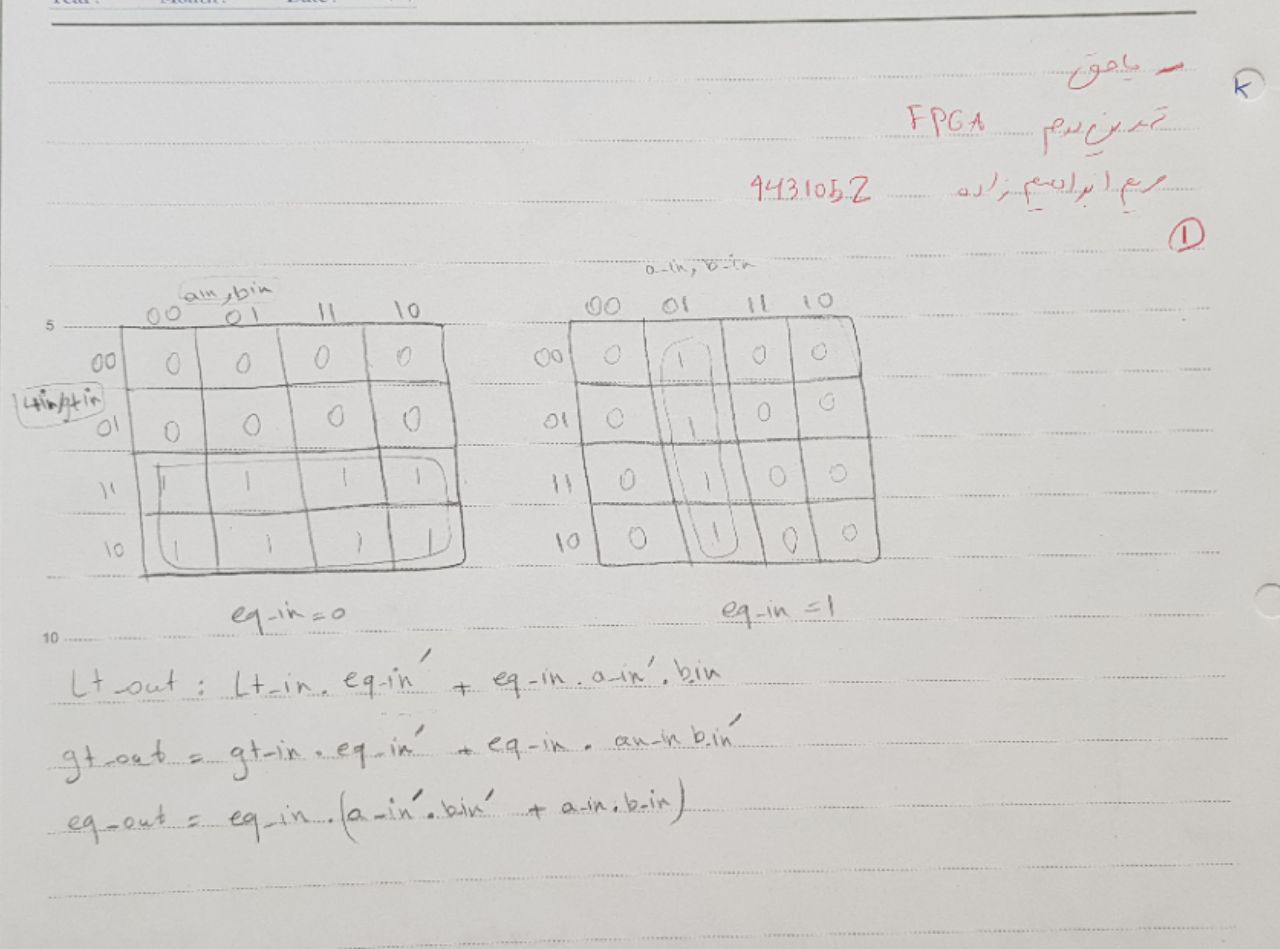 - یا حق
تمرین دوم FPGA
مریم ابراهیم زاده 9431052
①
k
a in, bin
00 01 11 10
5
00 0 0 0 0
Lt in/gt in
01 0 0 0 0
11 1 1 1 1
10 1 1 1 1
eq-in = 0
a-in, b-in
00 01 11 10
00 0 1 0 0
01 0 1 0 0
11 0 1 0 0
10 0 1 0 0
eq-in = 1
10
Lt-out : Lt-in . eq-in' + eq-in . a-in' . bin
gt-out = gt-in . eq-in' + eq-in . an-in b.in'
eq-out = eq-in . (a-in' . bin' + a-in . b-in)